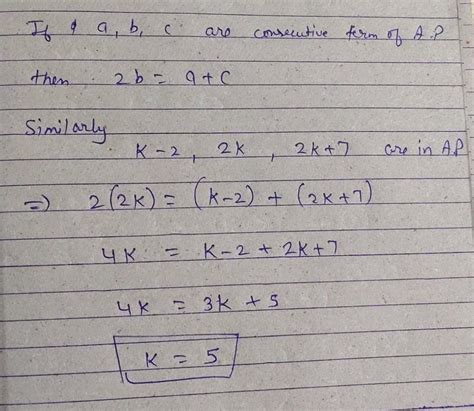 If a, b, c are consecutive term of A.P
then 2b = a+c
Similarly
k-2, 2k, 2k+7 are in A.P
=) 2(2k) = (k-2) + (2k+7)
4k = k-2 + 2k+7
4k = 3k + 5
k = 5